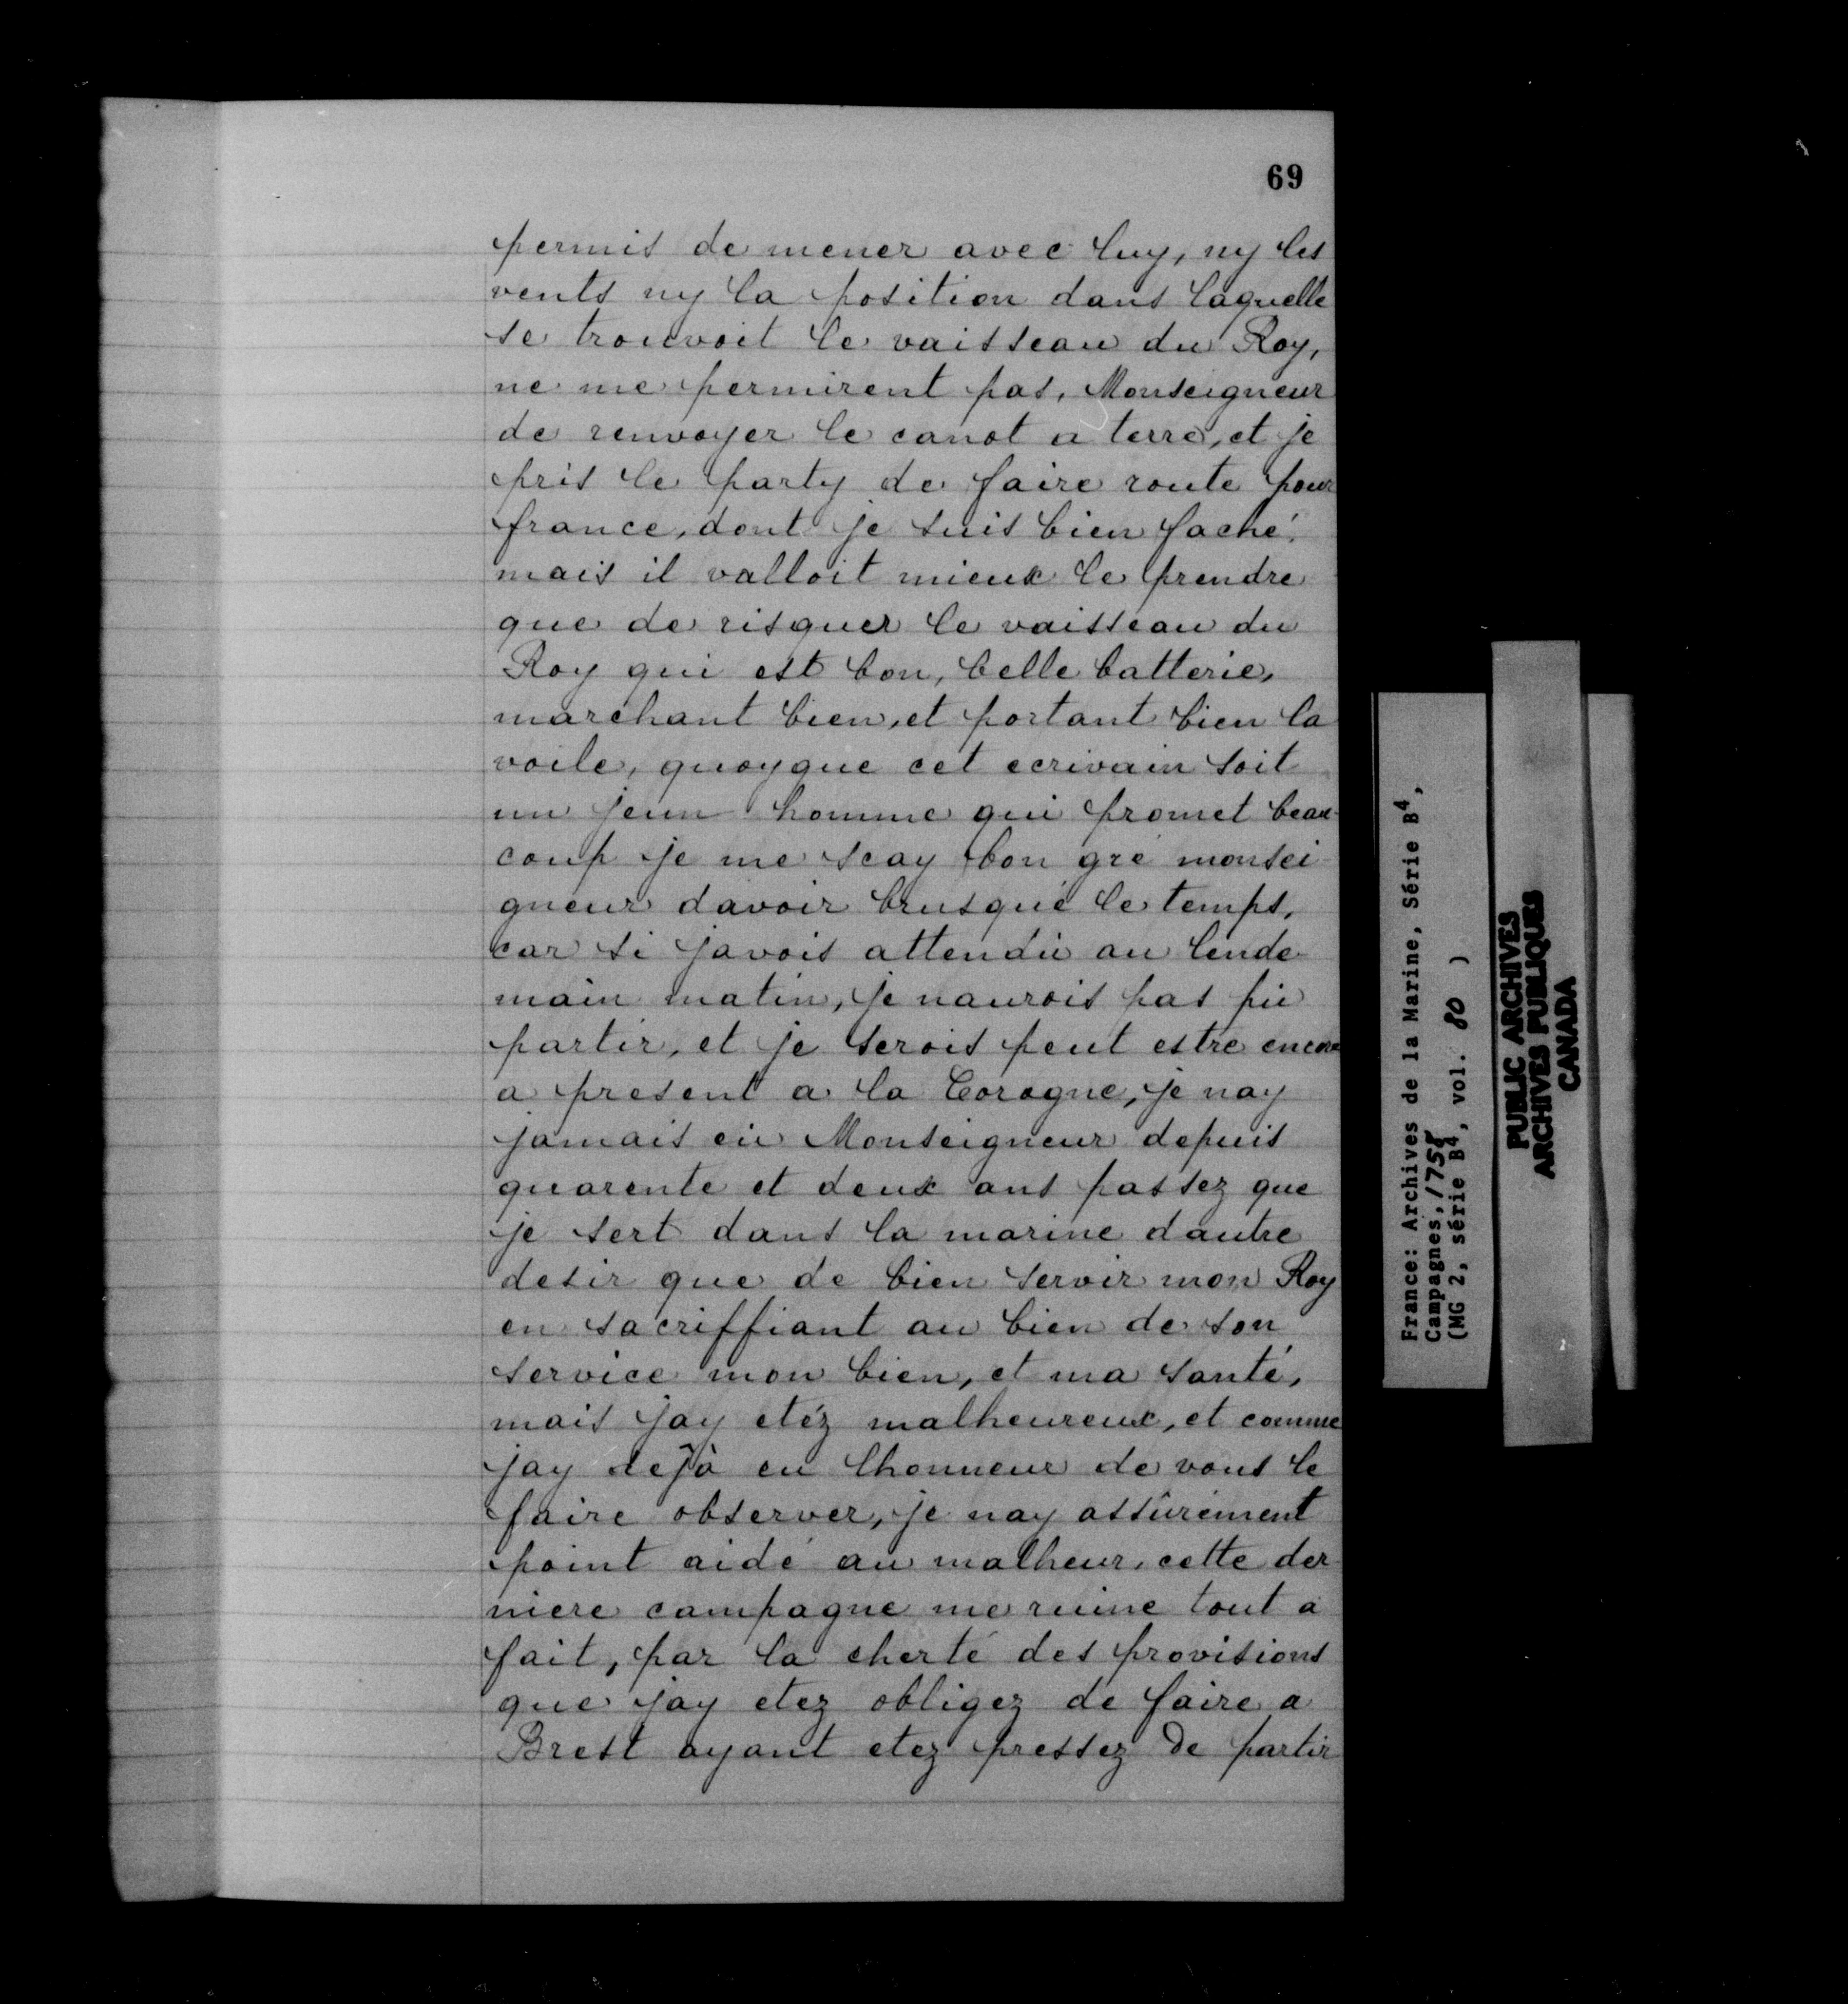 69
permis de mener avec luy, ny les
vents ny la position dans laquelle
se trouvoit le vaisseau du Roy,
ne me permirent pas, Monseigneur
de renvoyer le canot a terre, et je
pris le party de faire route pour
france, dont je suis bien faché.
mais il valloit mieux le prendre
que de risquer le vaisseau du
Roy qui est bon, belle batterie,
marchant bien, et portant bien la
voile, quoyque cet ecrivain soit
un jeun homme qui promet beau-
coup je me scay bon gré monsei-
gneur davoir brusqué le temps,
car si javois attendû au lende-
main matin, je naurois pas pû
partir, et je serois peut estre encore
a present a la Corogne, je nay
jamais eû Monseigneur depuis
quarente et deux ans passez que
je sert dans la marine dautre
desir que de bien servir mon Roy
en sacriffiant au bien de son
service mon bien, et ma santé,
mais jay etéz malheureux, et comme
jay dejà eu lhonneur de vous le
faire observer, je nay assûrément
point aidé au malheur, cette der
niere campagne me ruine tout a
fait, par la cherté des provisions
que jay etez obligez de faire a
Brest ayant etez pressez de partir
France: Archives de la Marine, Série B4,
Campagnes, 1758
(MG 2, série B4, vol. 80 )
PUBLIC ARCHIVES
ARCHIVES PUBLIQUES
CANADA